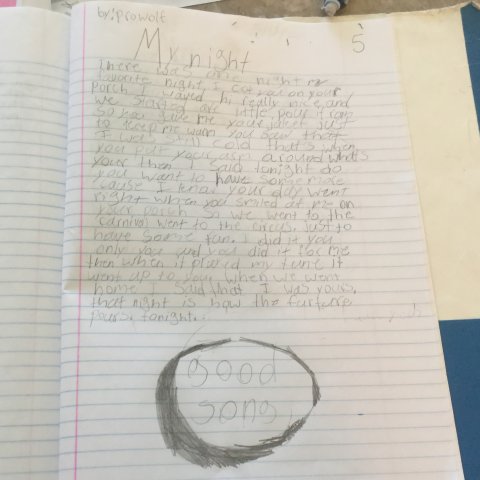 by: prowolf
5
My night
There was one night my
favorite night, I saw you on your
porch I waved hi really nice, and
we started out little pour it came
So you gave me your jacket just
to keep me warm you saw that
I was still cold that's when
you put your arm around what's
your then I said tonight do
you want to have some more
cause I know your day went
right when you smiled at me on
your porch So we went to the
carnivol went to the circus, just to
have some fun. I did it you
only you and you did it for me
then when it played my tune it
went up to you, when we went
home I said that I was yours,
that night is how the furture
pours, tonight.
good
song